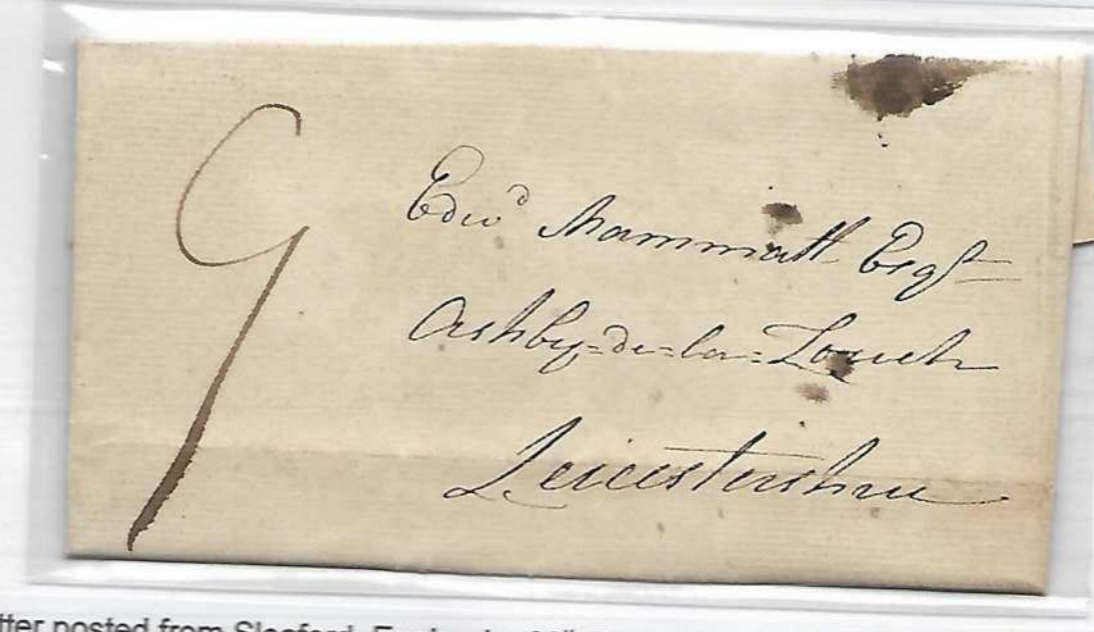 9
Edwd Mammatt Esqr
Ashby=de=la=Zouch
Leicestershire
tter posted from Sleaford, England